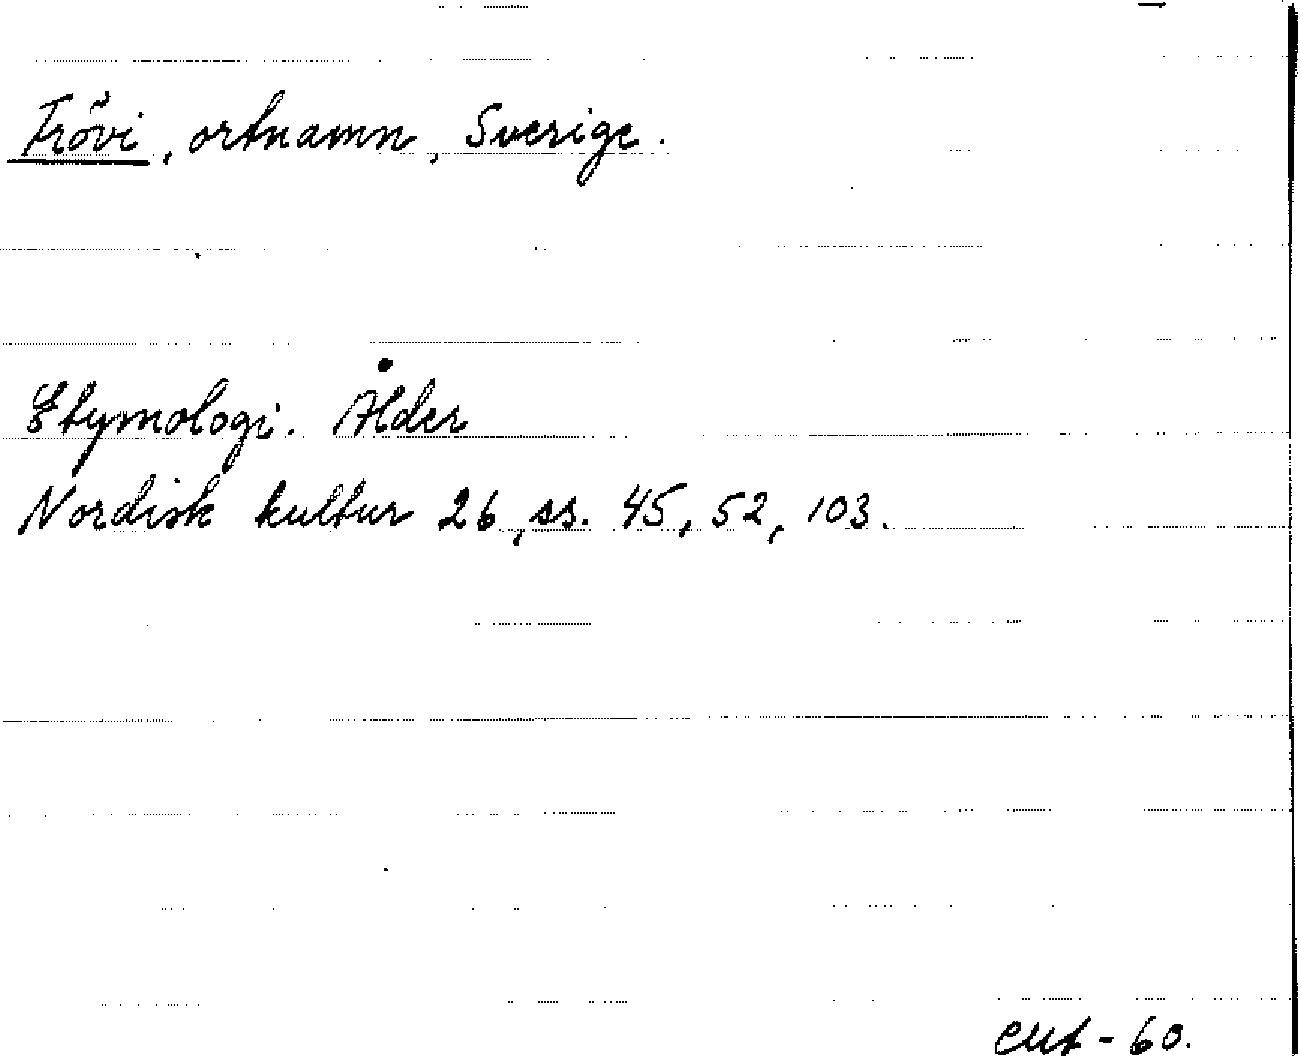 Frövi, ortnamn, Sverige.
Etymologi. Ålder
Nordisk kultur 26, ss. 45, 52, 103.
- 60.